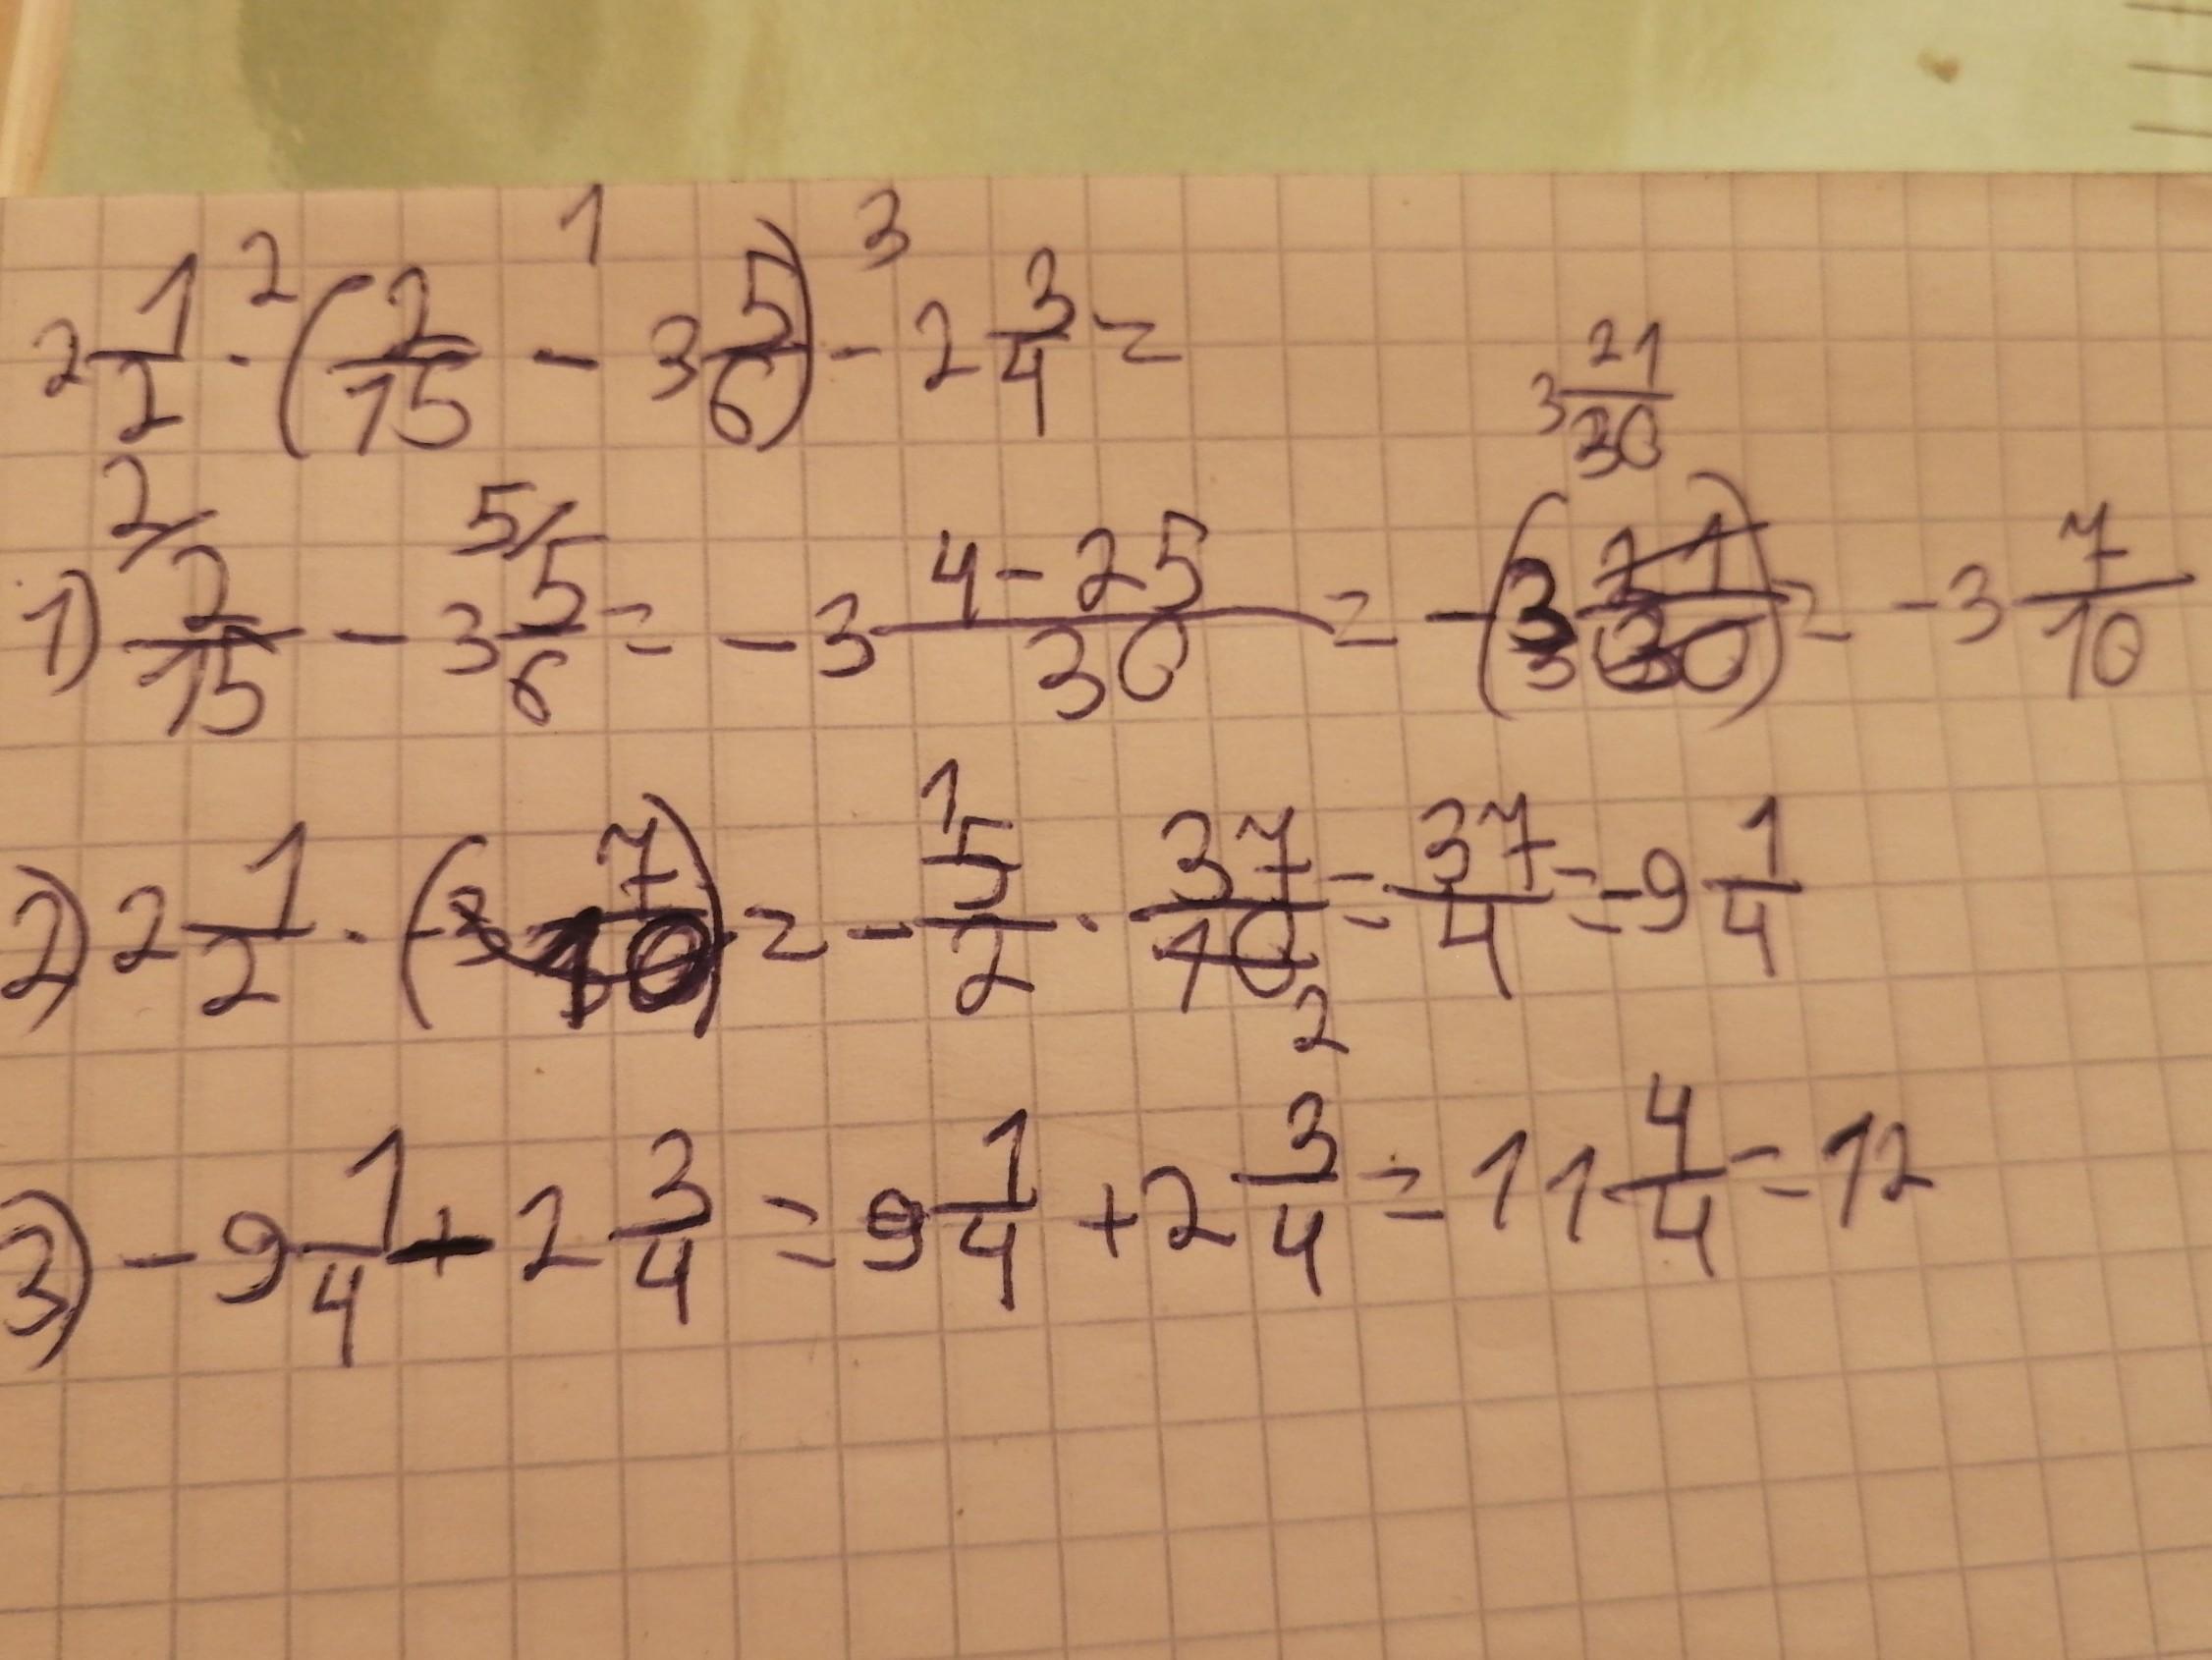 2 1/2 · (2/15 - 3 5/6) - 2 3/4 =
1) 2/15 - 3 5/6 = -3 (4-25)/30 = -(3 21/30) = -3 7/10
2) 2 1/2 · (-3 7/10) = - 5/2 · 37/10 = 37/4 = -9 1/4
3) -9 1/4 + 2 3/4 = 9 1/4 + 2 3/4 = 11 4/4 = 12